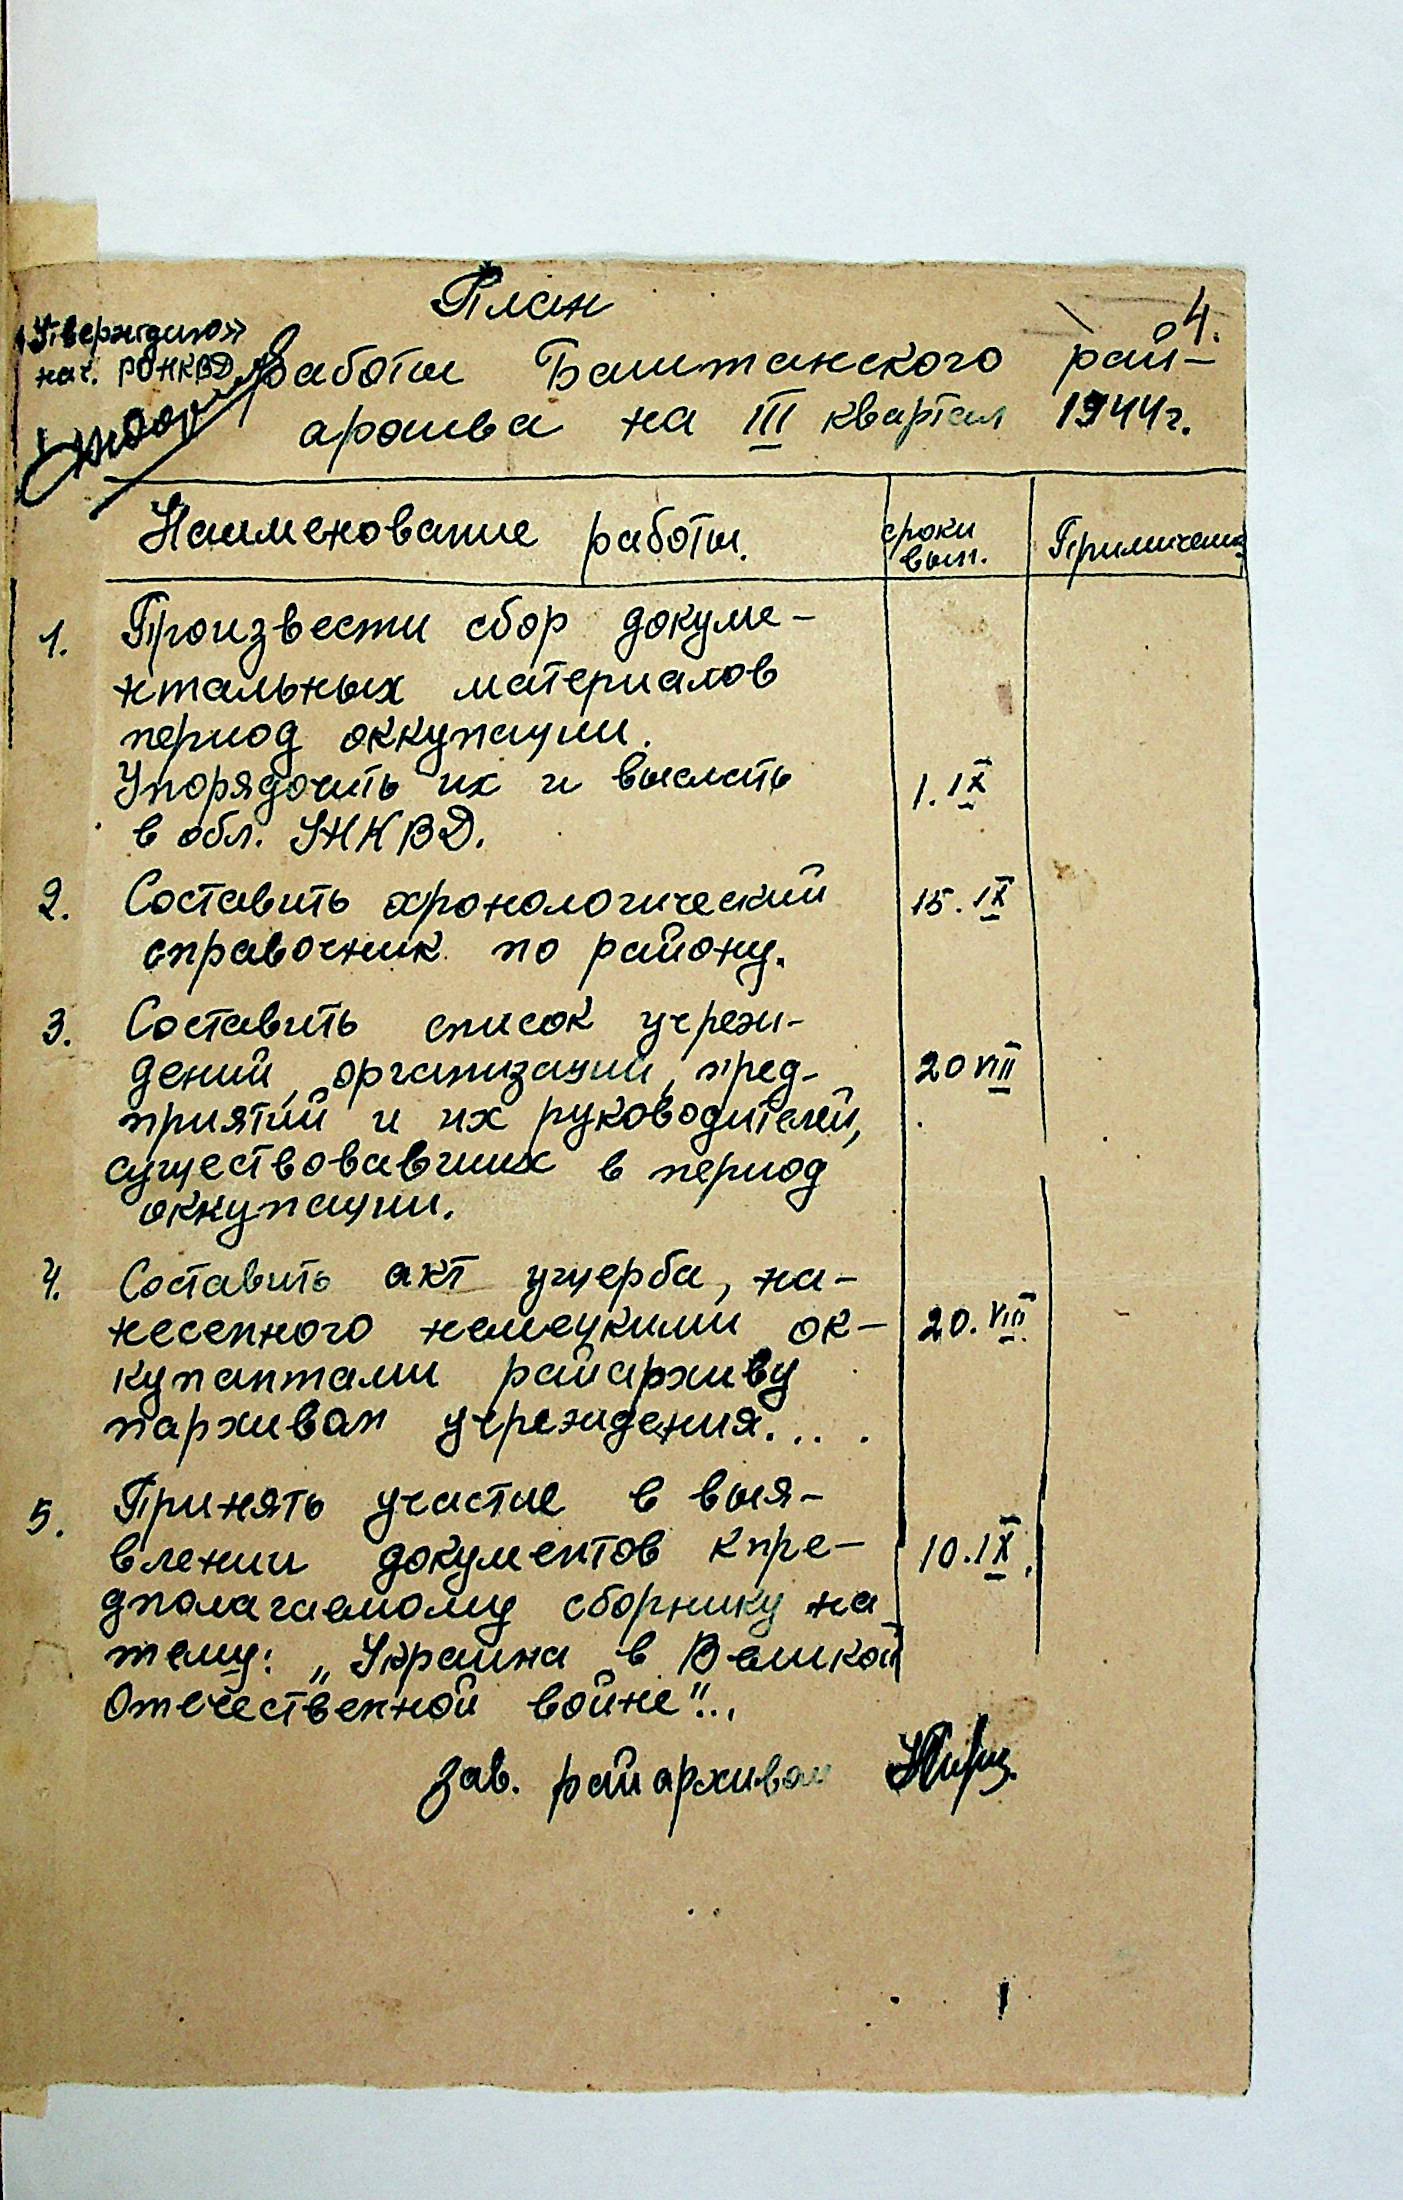 План
4.
„Утверждаю"
нач. РОНКВД
работы Баштанского рай-
архива на III квартал 1944г.
Наименование работы.
сроки
вып.
Примичание
1. Произвести сбор докуме-
нтальных материалов
период оккупации.
Упорядочить их и выслать
в обл. УНКВД.
1. IX
2. Составить хронологический
справочник по району.
15. IX
3. Составить список учреж-
дений, организаций, пред-
приятий и их руководителей,
существовавших в период
оккупации.
20 VIII
4. Составить акт ущерба, на-
несенного немецкими ок-
купантами райархиву
иархивам учреждения....
20. VIII
5. Принять участие в выя-
влении документов кпре-
дполагаемому сборнику на
тему: „Украина в Великой
Отечественной войне"..
10. IX.
зав. райархивом